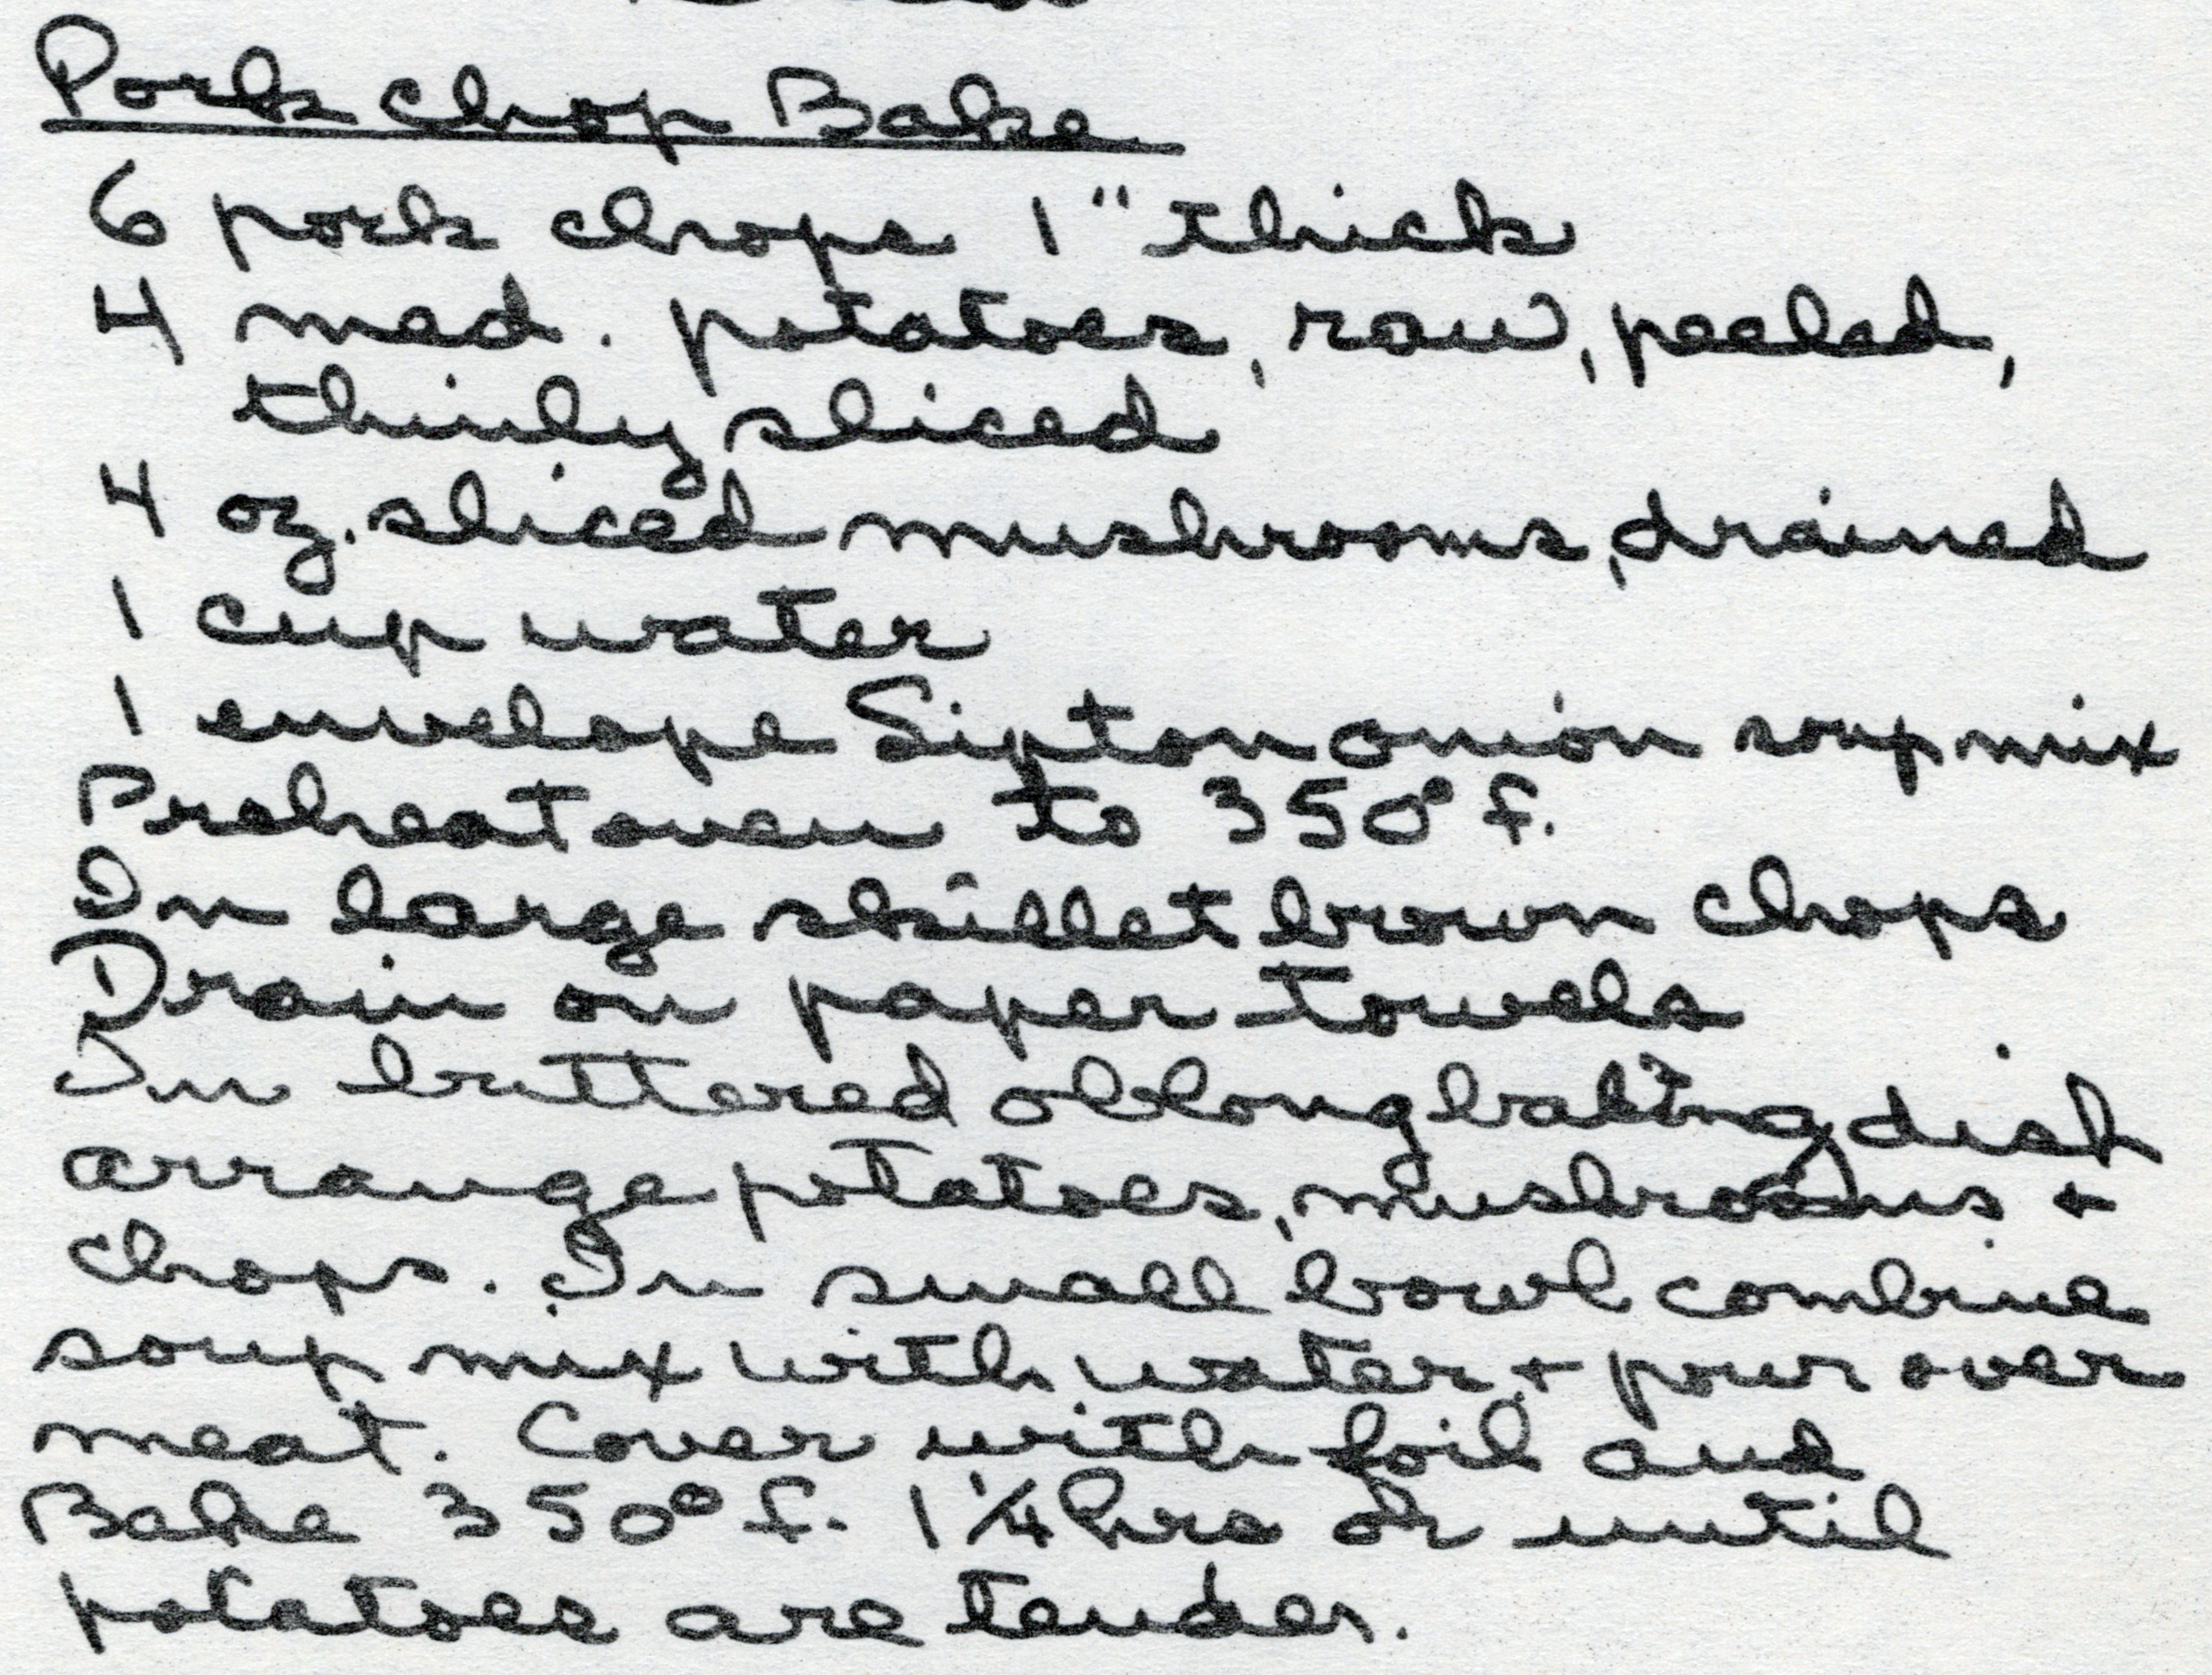 Pork Chop Bake
6 pork chops 1" thick
4 med. potatoes, raw, peeled,
thinly sliced
4 oz. sliced mushrooms, drained
1 cup water
1 envelope Lipton onion soup mix
Preheat oven to 350° f.
In large skillet brown chops
Drain on paper towels
In buttered oblong baking dish
arrange potatoes, mushrooms +
chops. In small bowl combine
soup mix with water + pour over
meat. Cover with foil and
Bake 350° f. 1 1/4 hrs or until
potatoes are tender.